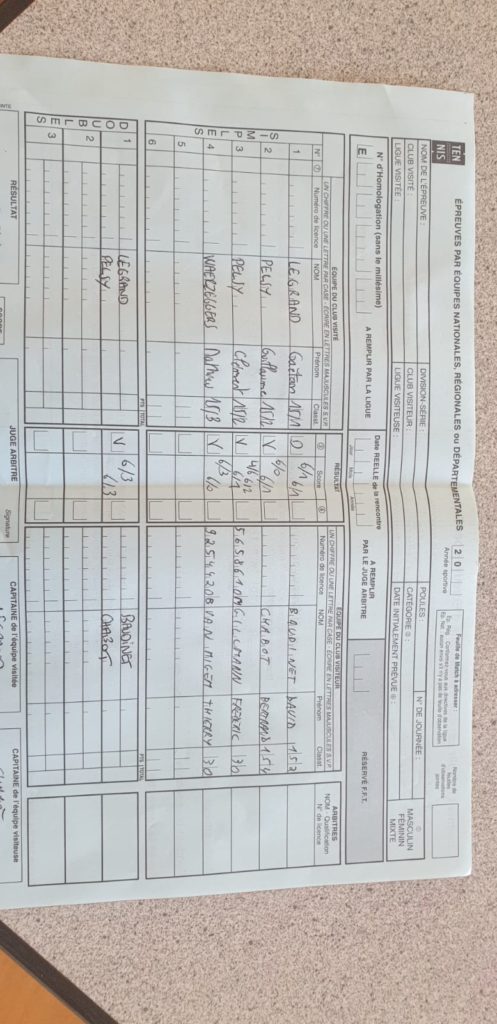 TEN
NIS
ÉPREUVES PAR ÉQUIPES NATIONALES, RÉGIONALES ou DÉPARTEMENTALES
2 0
Année sportive
Feuille de Match à adresser :
NOM DE L'ÉPREUVE :
DIVISION-SÉRIE :
POULES
N° DE JOURNÉE :
MASCULIN
FÉMININ
MIXTE
CLUB VISITÉ :
CLUB VISITEUR :
CATÉGORIE
LIGUE VISITÉE :
LIGUE VISITEUSE :
DATE INITIALEMENT PRÉVUE
N° d'Homologation (sans le millésime)
E
A REMPLIR PAR LA LIGUE
Date RÉELLE de la rencontre
Jour Mois Année
A REMPLIR
PAR LE JUGE ARBITRE
RÉSERVÉ F.F.T.
ÉQUIPE DU CLUB VISITÉ
RÉSULTAT
ÉQUIPE DU CLUB VISITEUR
ARBITRES
UN CHIFFRE OU UNE LETTRE PAR CASE - ÉCRIRE EN LETTRES MAJUSCULES S.V.P.
UN CHIFFRE OU UNE LETTRE PAR CASE - ÉCRIRE EN LETTRES MAJUSCULES S.V.P.
NOM - Qualification
N° de licence
N° Numéro de licence NOM Prénom Classt. Score Numéro de licence NOM Prénom Classt.
SIMPLES
1 LEGRAND Gaëtan 15/1 D 6/1 6/1 BAUDINET DAVID 15/2
2 PELSY Guillaume 15/2 V 6/0 6/1 CHABOT BERNARD 15/4
3 PELSY Clément 15/2 V 4/6 6/2 6/1 FREDERIC 30
4 Mathieu 15/3 V 6/3 6/0 VAN MIGEM THIERRY 30
5
6
PTS TOTAL
PTS TOTAL
DOUBLES
1 LEGRAND PELSY V 6/3 6/3 BAUDINET CHABOT
2
3
PTS TOTAL
PTS TOTAL
RÉSULTAT
JUGE ARBITRE
Signature
CAPITAINE de l'équipe visitée
CAPITAINE de l'équipe visiteuse